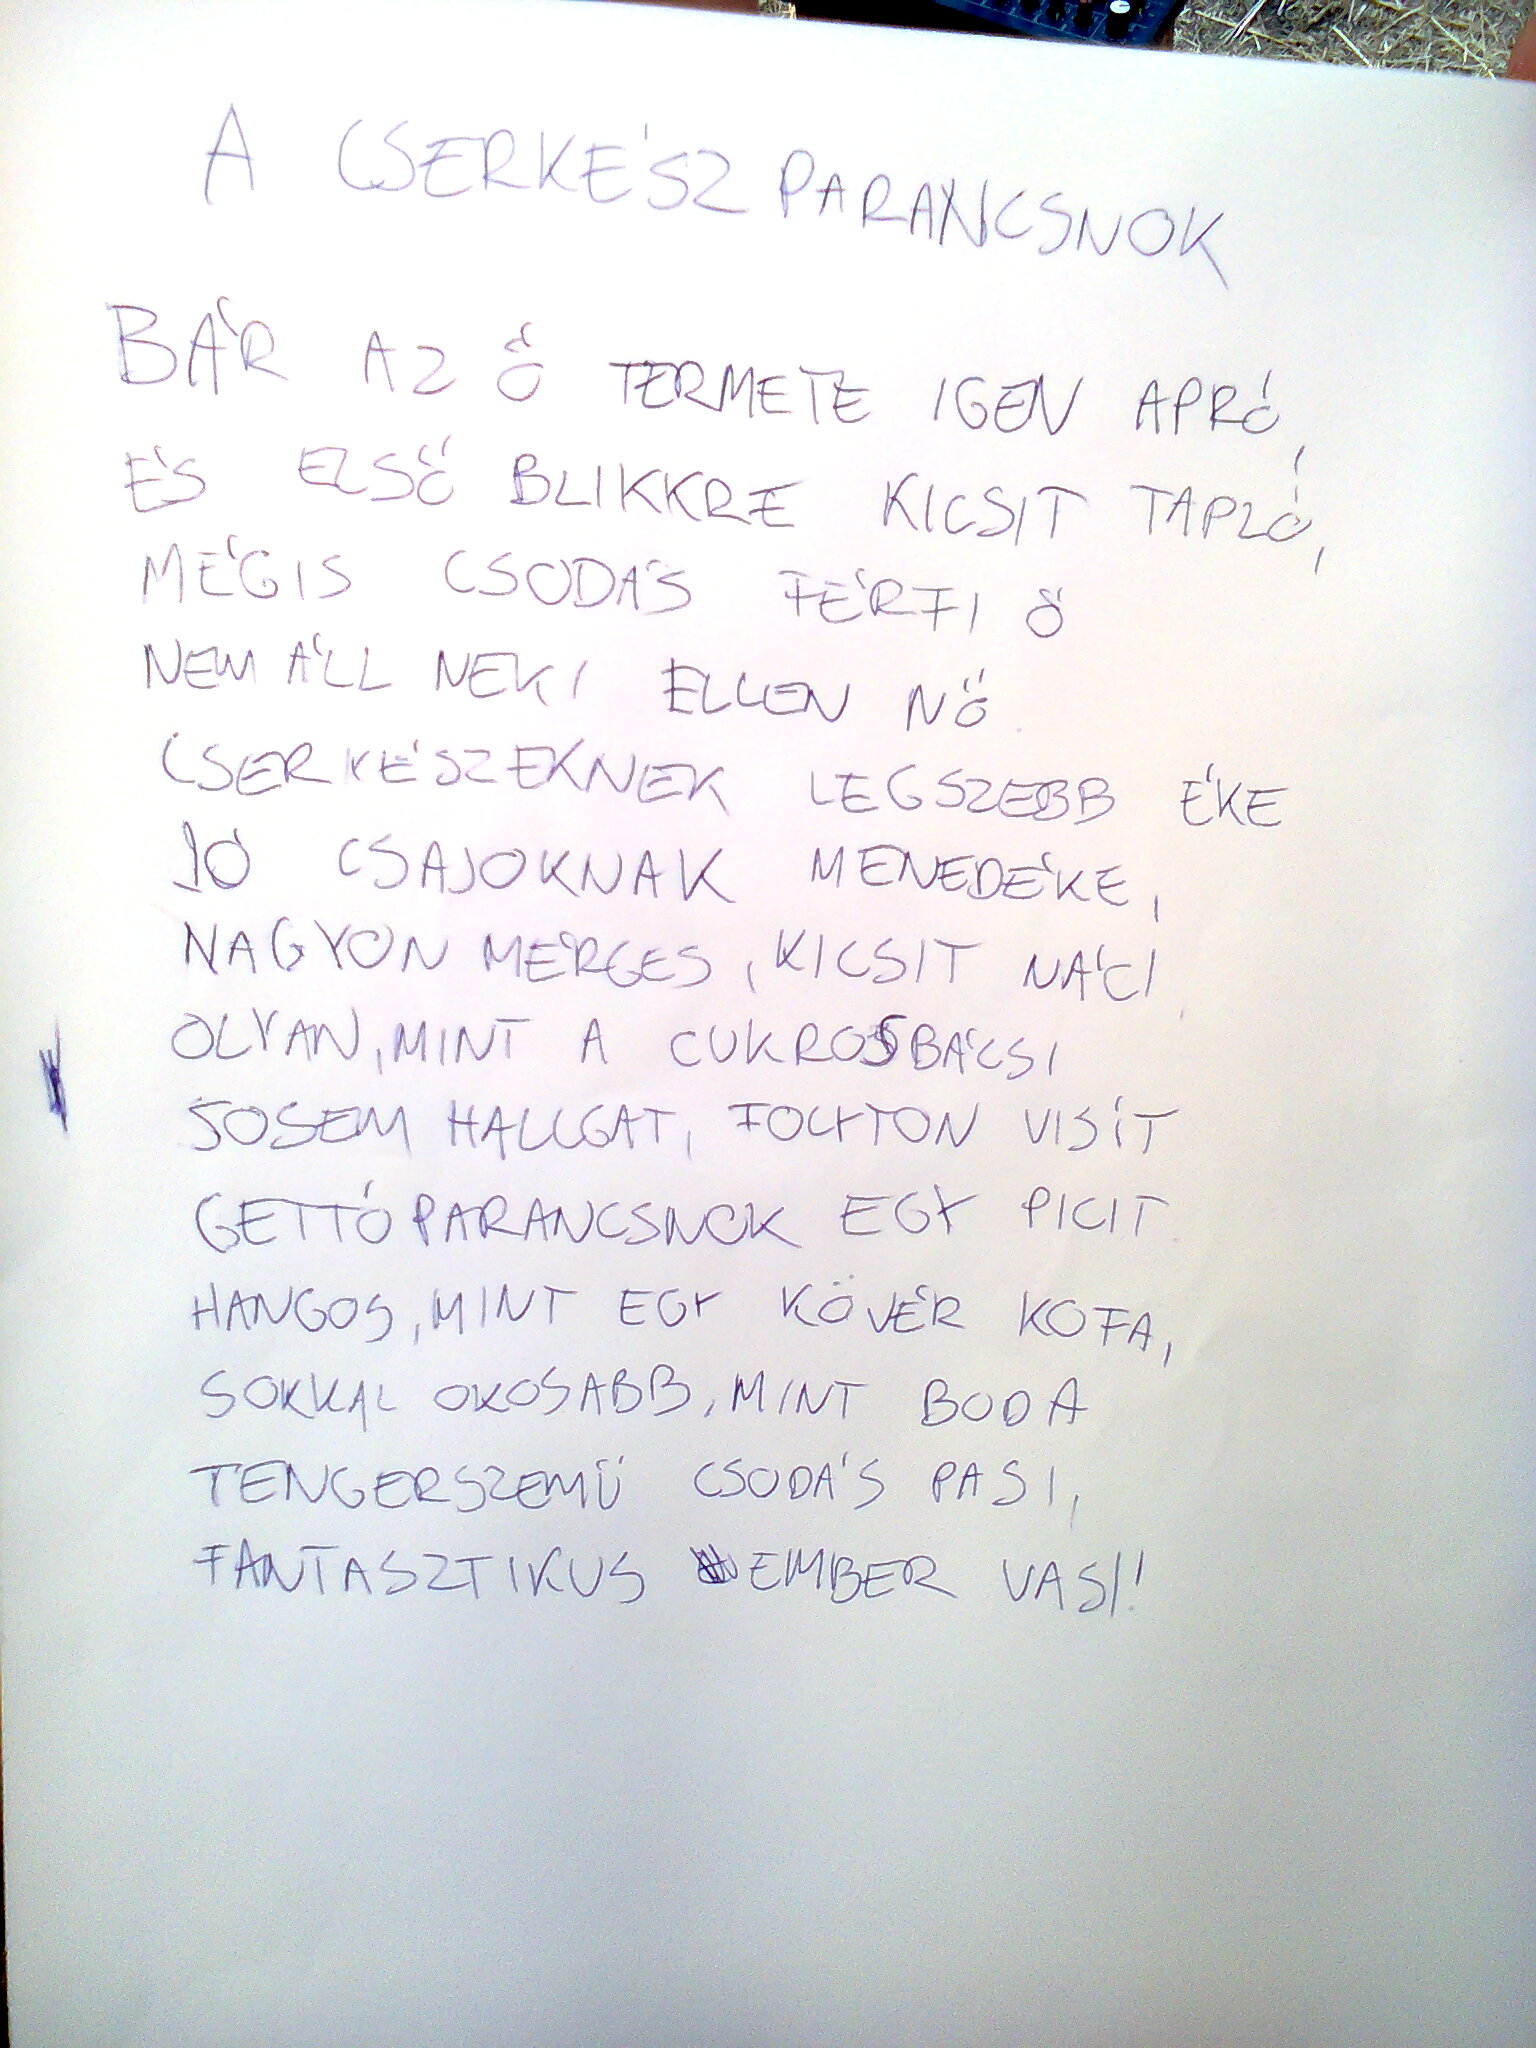 A CSERKÉSZPARANCSNOK
BÁR AZ Ő TERMETE IGEN APRÓ,
ÉS ELSŐ BLIKKRE KICSIT TAPLÓ,
MÉGIS CSODÁS FÉRFI Ő
NEM ÁLL NEKI ELLEN NŐ
CSERKÉSZEKNEK LEGSZEBB ÉKE
JÓ CSAJOKNAK MENEDÉKE,
NAGYON MÉRGES, KICSIT NÁCI
OLYAN, MINT A CUKROSBÁCSI
SOSEM HALLGAT, FOLYTON VISÍT
GETTÓPARANCSNOK EGY PICIT
HANGOS, MINT EGY KÖVÉR KOFA,
SOKKAL OKOSABB, MINT BODA
TENGERSZEMŰ CSODÁS PASI,
FANTASZTIKUS EMBER VASI!